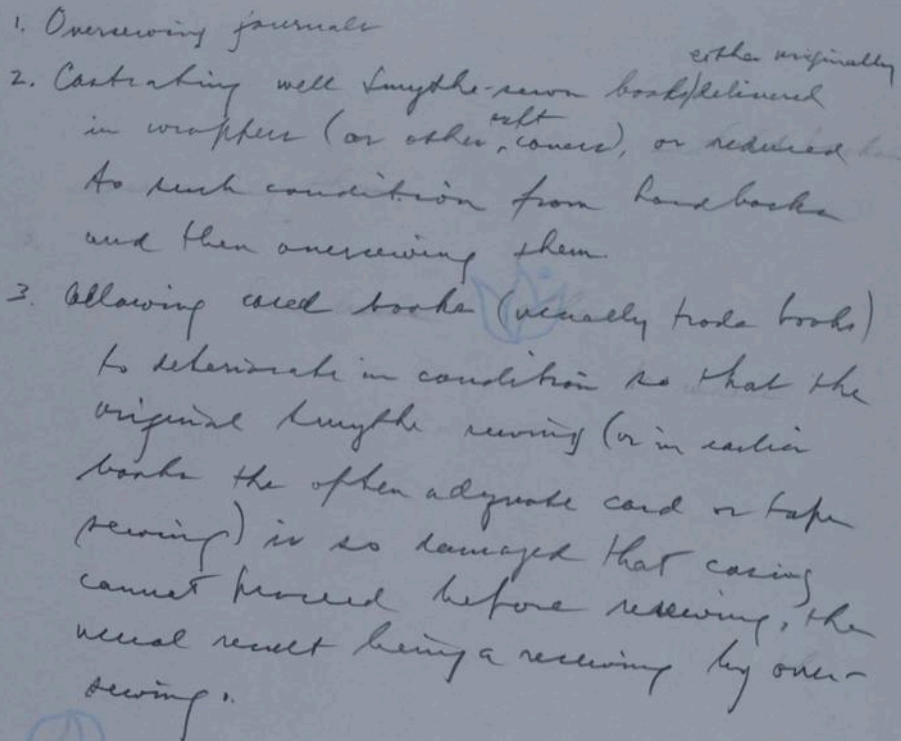 1. Oversewing journals
either originally
2. Castrating well Smythe-sewn books/delivered
soft
in wrappers (or other, covers), or reduced
to such condition from hardbacks
and then oversewing them.
3. Allowing cased books (usually trade books)
to deteriorate in condition so that the
original Smythe sewing (or in earlier
books the often adequate cord or tape
sewing) is so damaged that casing
cannot proceed before resewing, the
usual result being a resewing by over-
sewing.